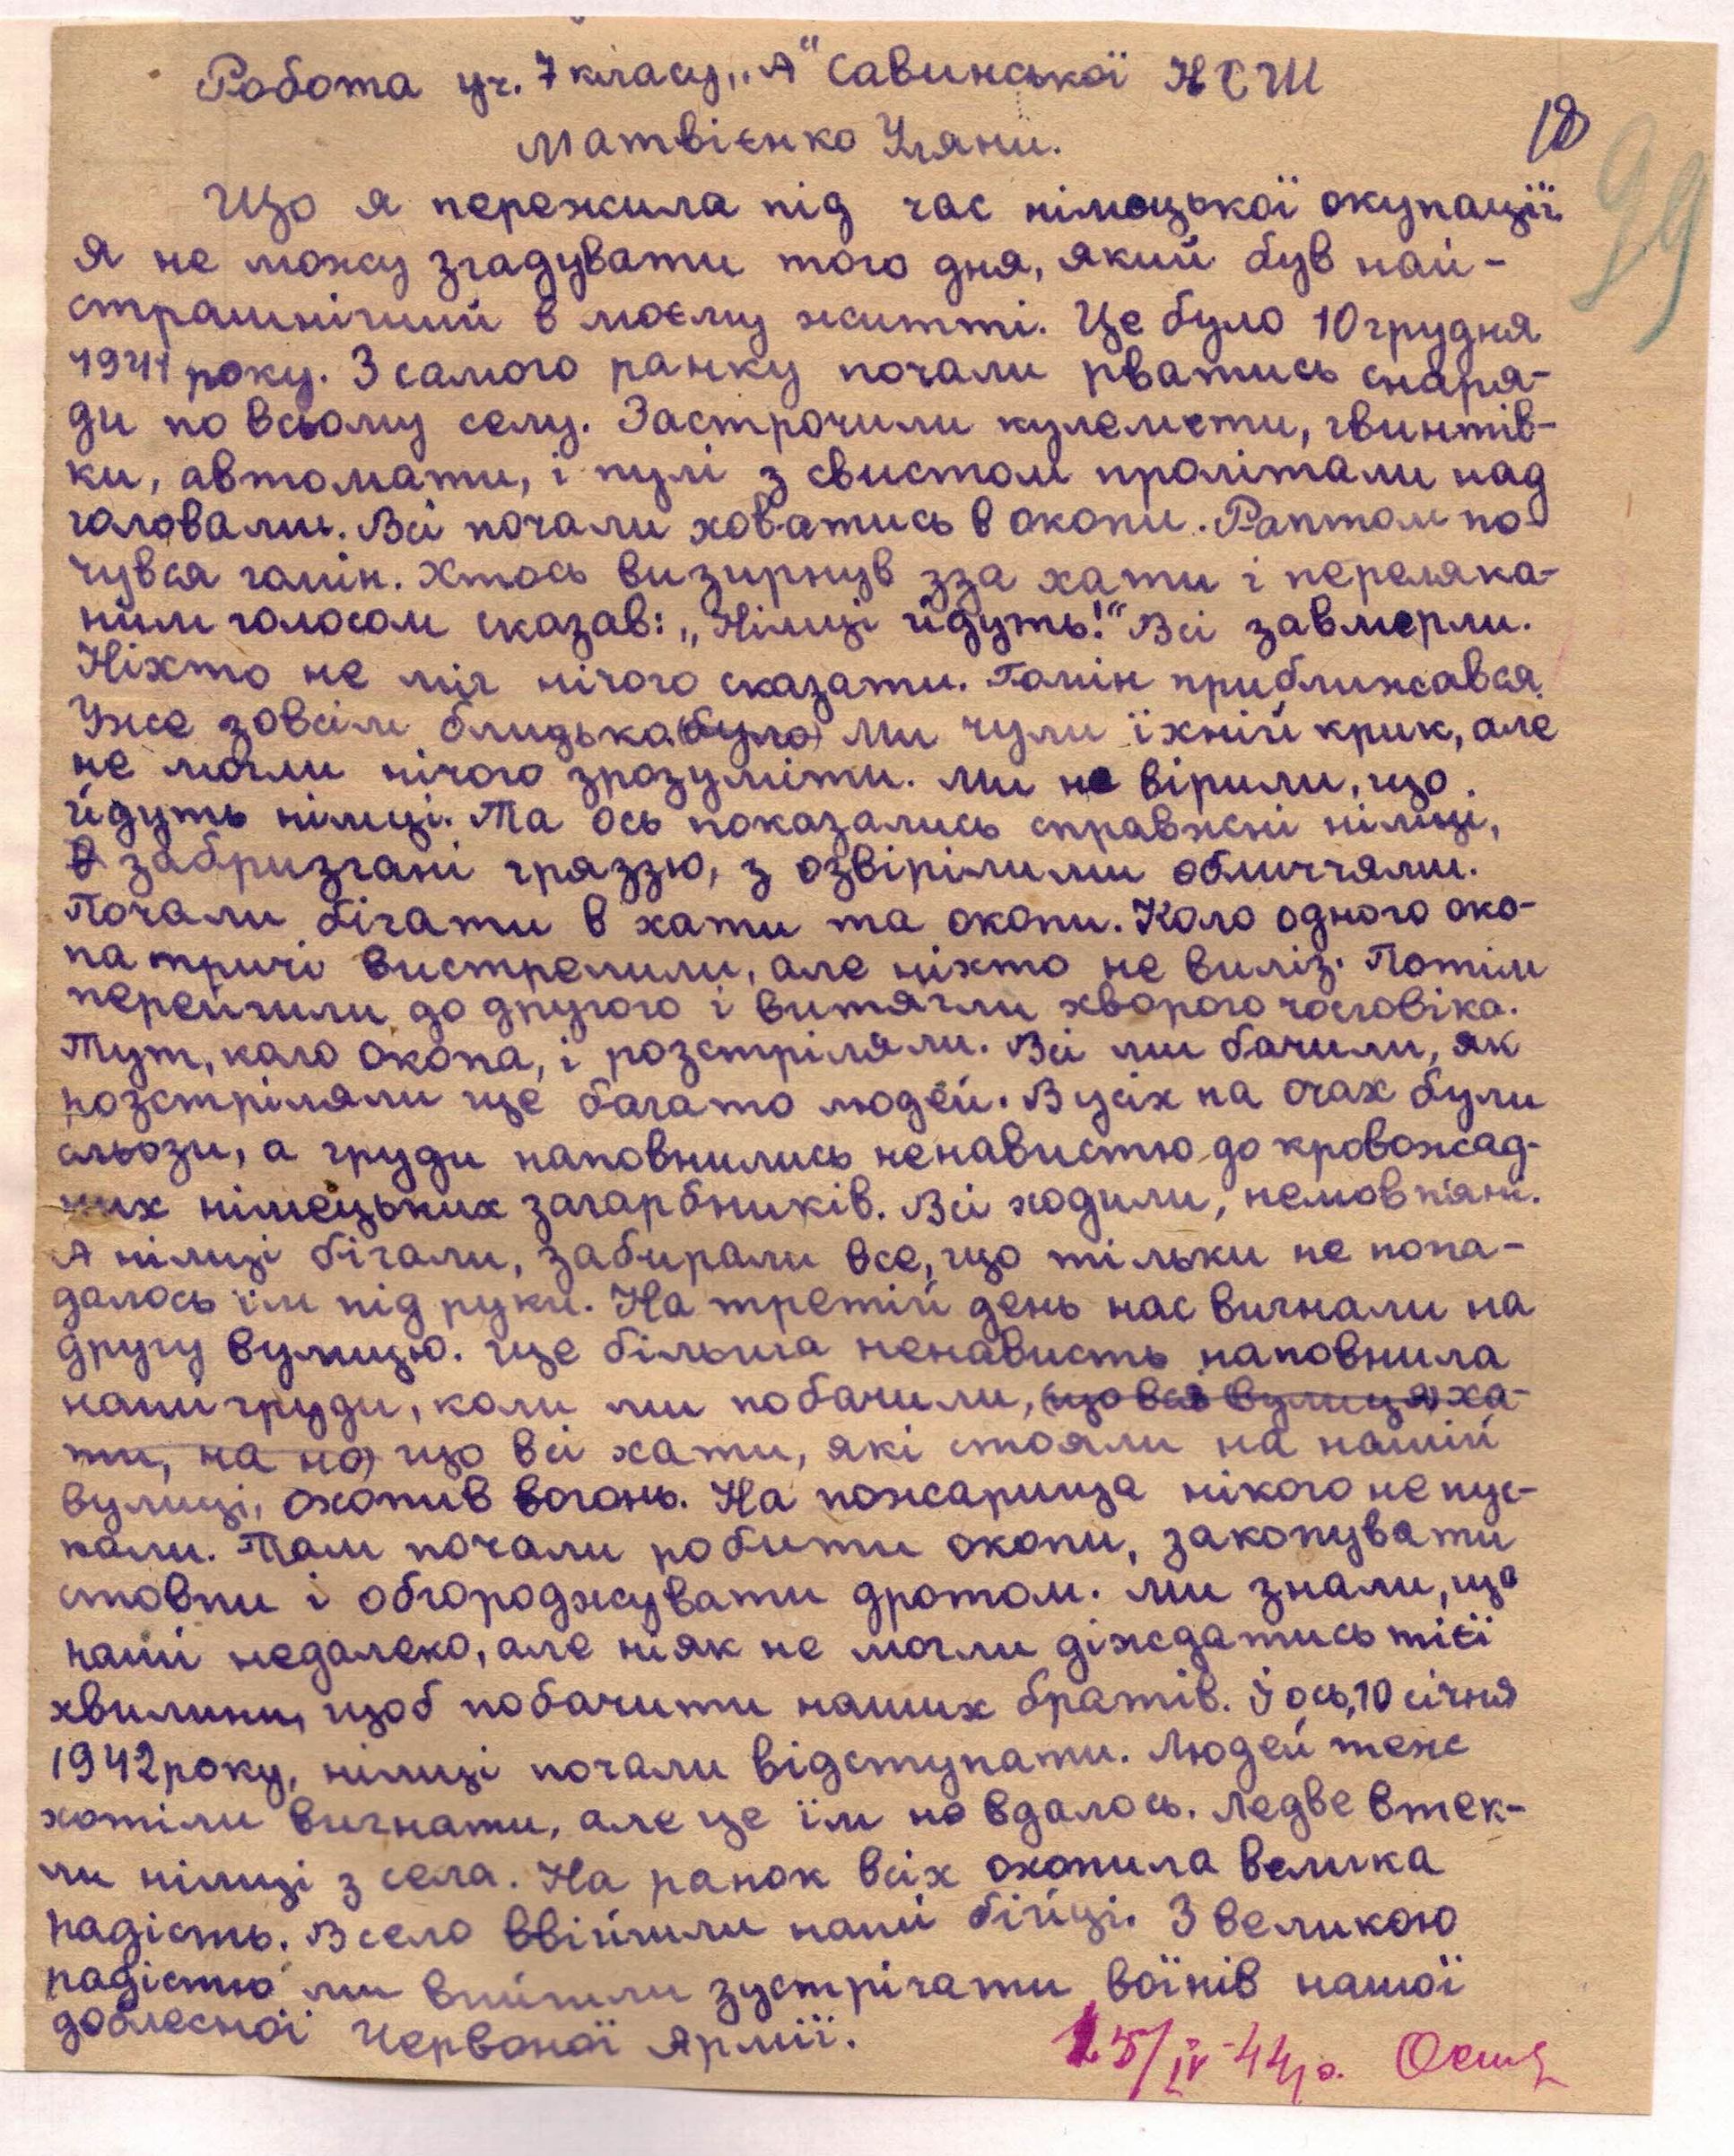 Робота уч. 7 класу „А“ Савинської НСШ
Матвієнко Уляни.
18
99
Що я пережила під час німецької окупації.
Я не можу згадувати того дня, який був най-
страшнічий в моєму житті. Це було 10 грудня
1941 року. З самого ранку почали рватись снаря-
ди по всьому селу. Застрочили кулемети, гвинтів-
ки, автомати, і пулі з свистом пролітали над
головами. Всі почали ховатись в окопи. Раптом по-
чувся гомін. Хтось визирнув зза хати і переляка-
ним голосом сказав: „Німці йдуть!“ Всі завмерли.
Ніхто не міг нічого сказати. Гомін приближався.
Уже зовсім близько (було) ми чули їхній крик, але
не могли нічого зрозуміти. Ми не вірили, що
йдуть німці. Та ось показались справжні німці,
забризгані гряззю, з озвірілими обличчями.
Почали бігати в хати та окопи. Коло одного око-
па тричі вистрелили, але ніхто не виліз. Потім
перейшли до другого і витягли хворого чоловіка.
Тут, коло окопа, і розстріляли. Всі ми бачили, як
розстріляли ще багато людей. В усіх на очах були
сльози, а груди наповнились ненавистю до кровожад-
них німецьких загарбників. Всі ходили, немов п'яні.
А німці бігали, забирали все, що тільки не попа-
далось їм під руки. На третій день нас вигнали на
другу вулицю. Ще більша ненависть наповнила
наші груди, коли ми побачили, (що вся вулиця) ха-
ти, на на) що всі хати, які стояли на нашій
вулиці, охопив вогонь. На пожарища нікого не пус-
кали. Там почали робити окопи, закопувати
стовпи і обгороджувати дротом. Ми знали, що
наші недалеко, але ніяк не могли діждатись тієї
хвилини, щоб побачити наших братів. І ось, 10 січня
1942 року, німці почали відступати. Людей теж
хотіли вигнати, але це їм не вдалось. Ледве втек-
ли німці з села. На ранок всіх охопила велика
радість. В село ввійшли наші бійці. З великою
радістю ми вийшли зустрічати воїнів нашої
доблесної Червоної Армії.
25/IV-44 р.